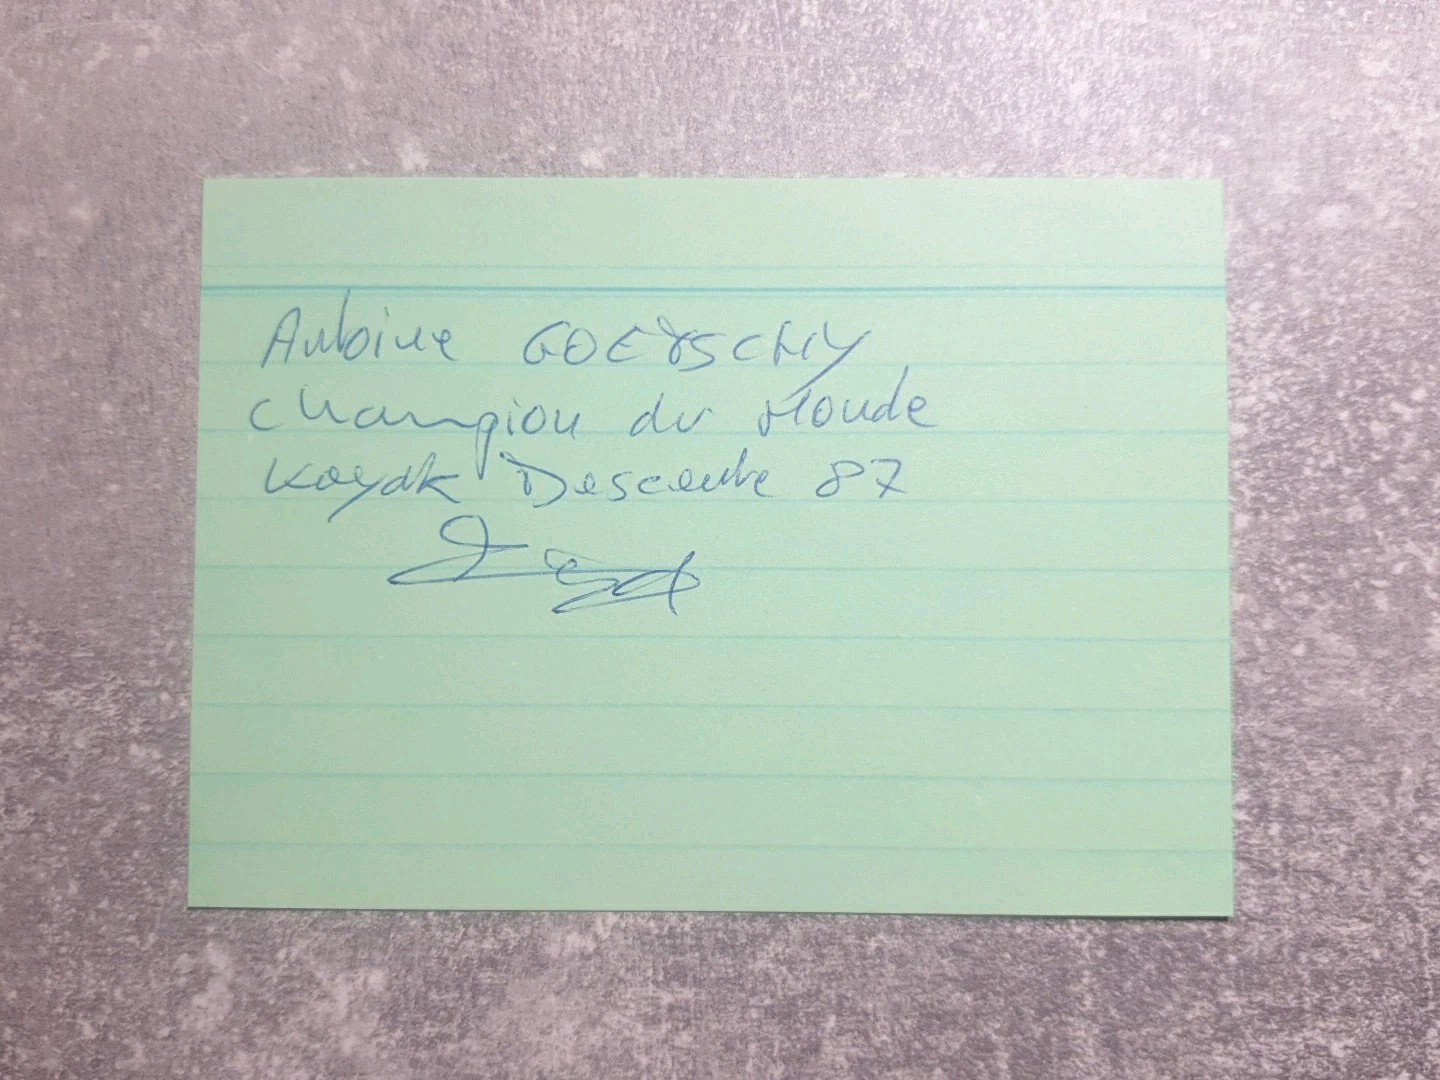 Antoine GOETSCHY
Champion du Monde
Kayak Descente 87